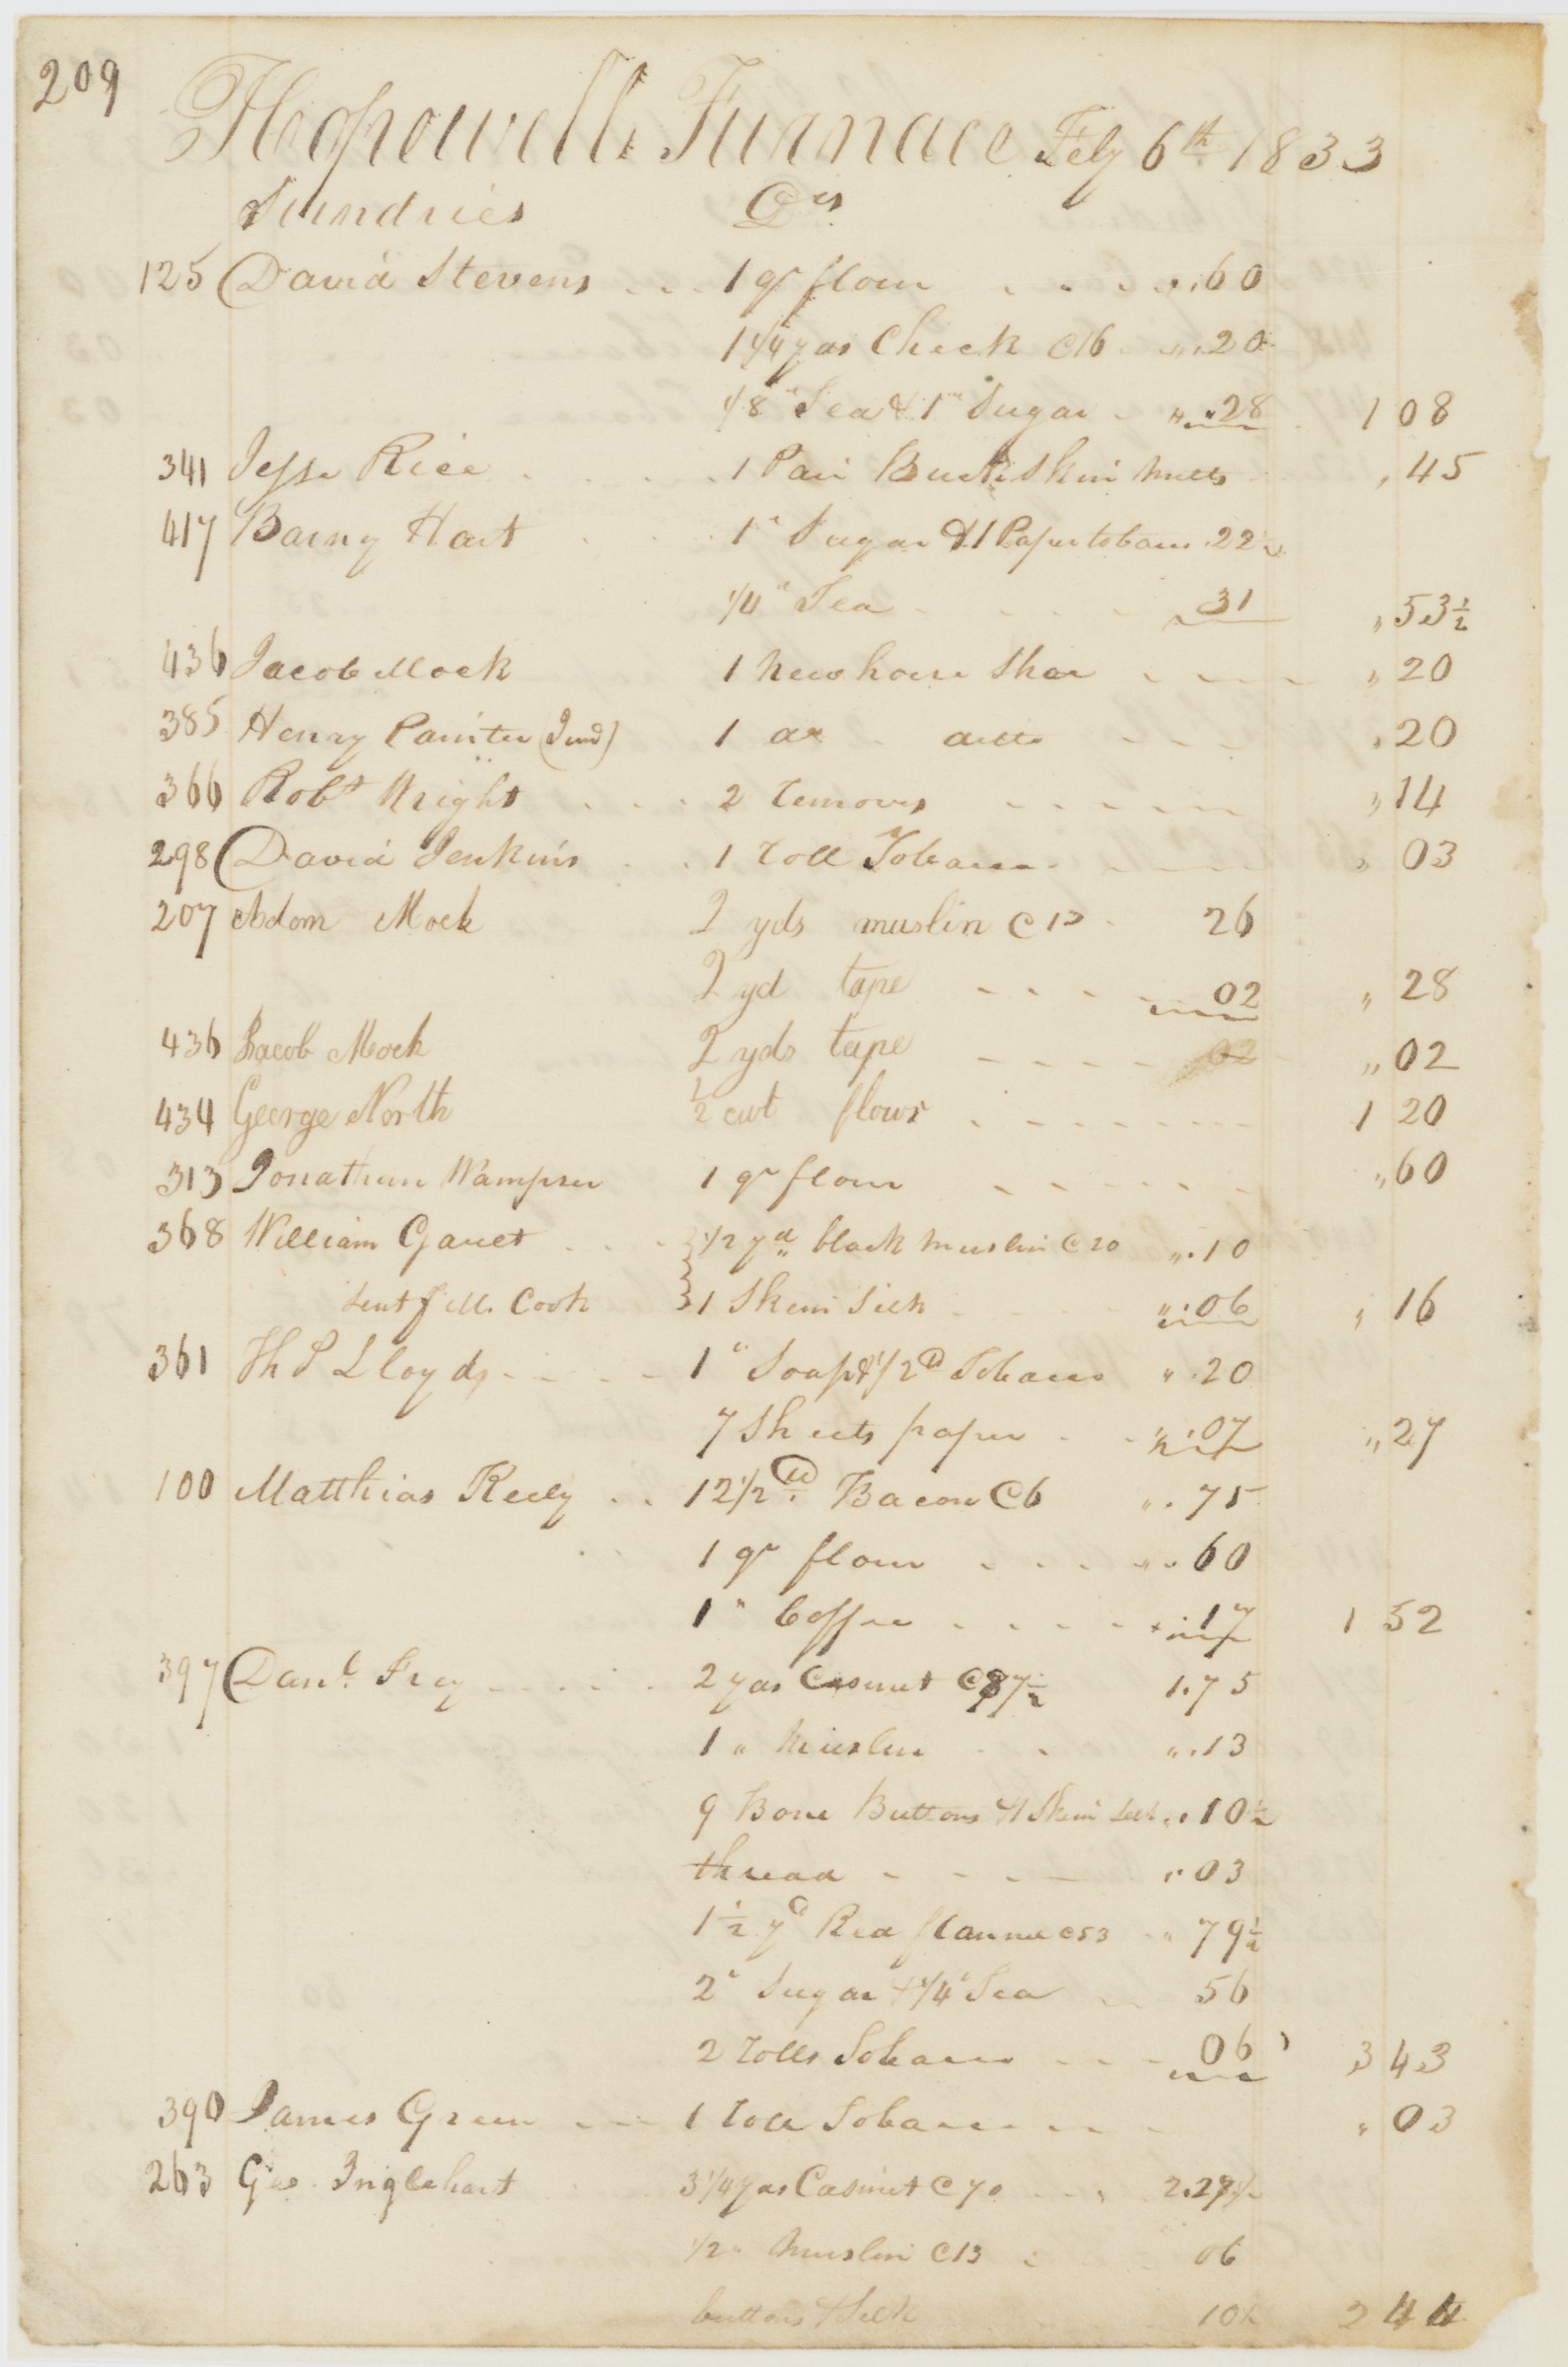 209
Hopewell Furnace Feby 6th 1833
Sundries Drs
125 David Stevens 1 qr flour .60
1 1/4 yds Check @16 .20
1/8 " Tea & 1 " Sugar .28 1 08
341 Jesse Rice 1 Pair Buckskin Mitts 45
417 Barny Hart 1 " Sugar & 1 Paper tobacco .22 1/2
1/4 " Tea 31 53 1/2
436 Jacob Mock 1 new horse Shoe 20
385 Henry Painter 1 do ditto 20
366 Robt Wright 2 removes 14
298 David Jenkins 1 roll Tobacco 03
207 Adam Mock 2 yds muslin @ 13 26
2 yd tape 02 " 28
436 Jacob Mock 2 yds tape 02 " 02
434 George North 1/2 cwt flour 1 20
313 Jonathan Wampser 1 qr flour " 60
368 William Garret 1/2 yd black muslin @ 20 " .10
M. Cook 1 Skein Silk " .06 " 16
361 Th S Lloyd 1 " Soap & 1/2 lb Tobacco " .20
7 Sheets paper " .07 " 27
100 Matthias Keely 12 1/2 lb Bacon @6 " .75
1 qr flour " .60
1 " Coffee " .17 1 52
397 Danl. Frey 2 yds Casinet @87 1/2 1.75
1 " Muslin " .13
9 Bone Buttons & 1 Skein Silk " .10 1/2
thread " 03
1 1/2 yd Red flannel @53 " 79 1/2
2 " Sugar & 1/4 " Tea 56
2 rolls Tobacco 06 3 43
390 James Green 1 roll Tobacco " 03
263 Geo Inglehart 3 1/4 yds Casinet @ 70 2.27 1/2
1/2 " Muslin @13 06
buttons & Silk 10 1/2 2 44